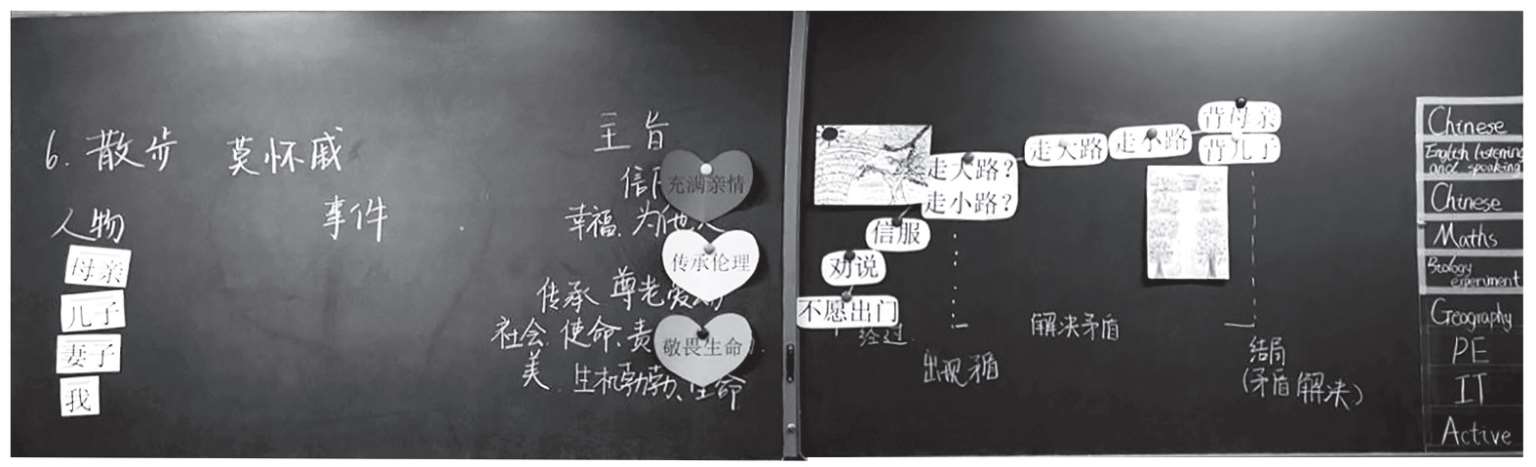 6. 散步 莫怀戚
人物
母亲
儿子
妻子
我
事件
主旨
充满亲情
幸福、为他人
传承伦理
传承、尊老爱
社会、使命、责
敬畏生命
美、生机勃勃、生命
不愿出门
劝说
信服
走大路?
走小路?
走大路
走小路
背母亲
背儿子
经过
出现矛盾
解决矛盾
结局
(矛盾解决)
Chinese
English listening
and speaking
Chinese
Maths
Biology
experiment
Geography
PE
IT
Active